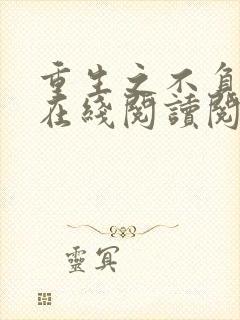 重生之不負
在綫閱讀閱
靈冥